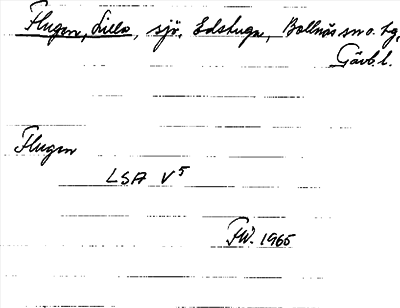 Flugen, Lilla, sjö, Edstuga, Bollnäs sn o. tg,
Gävb. l.
Flugen
LSA V⁵
FW. 1965